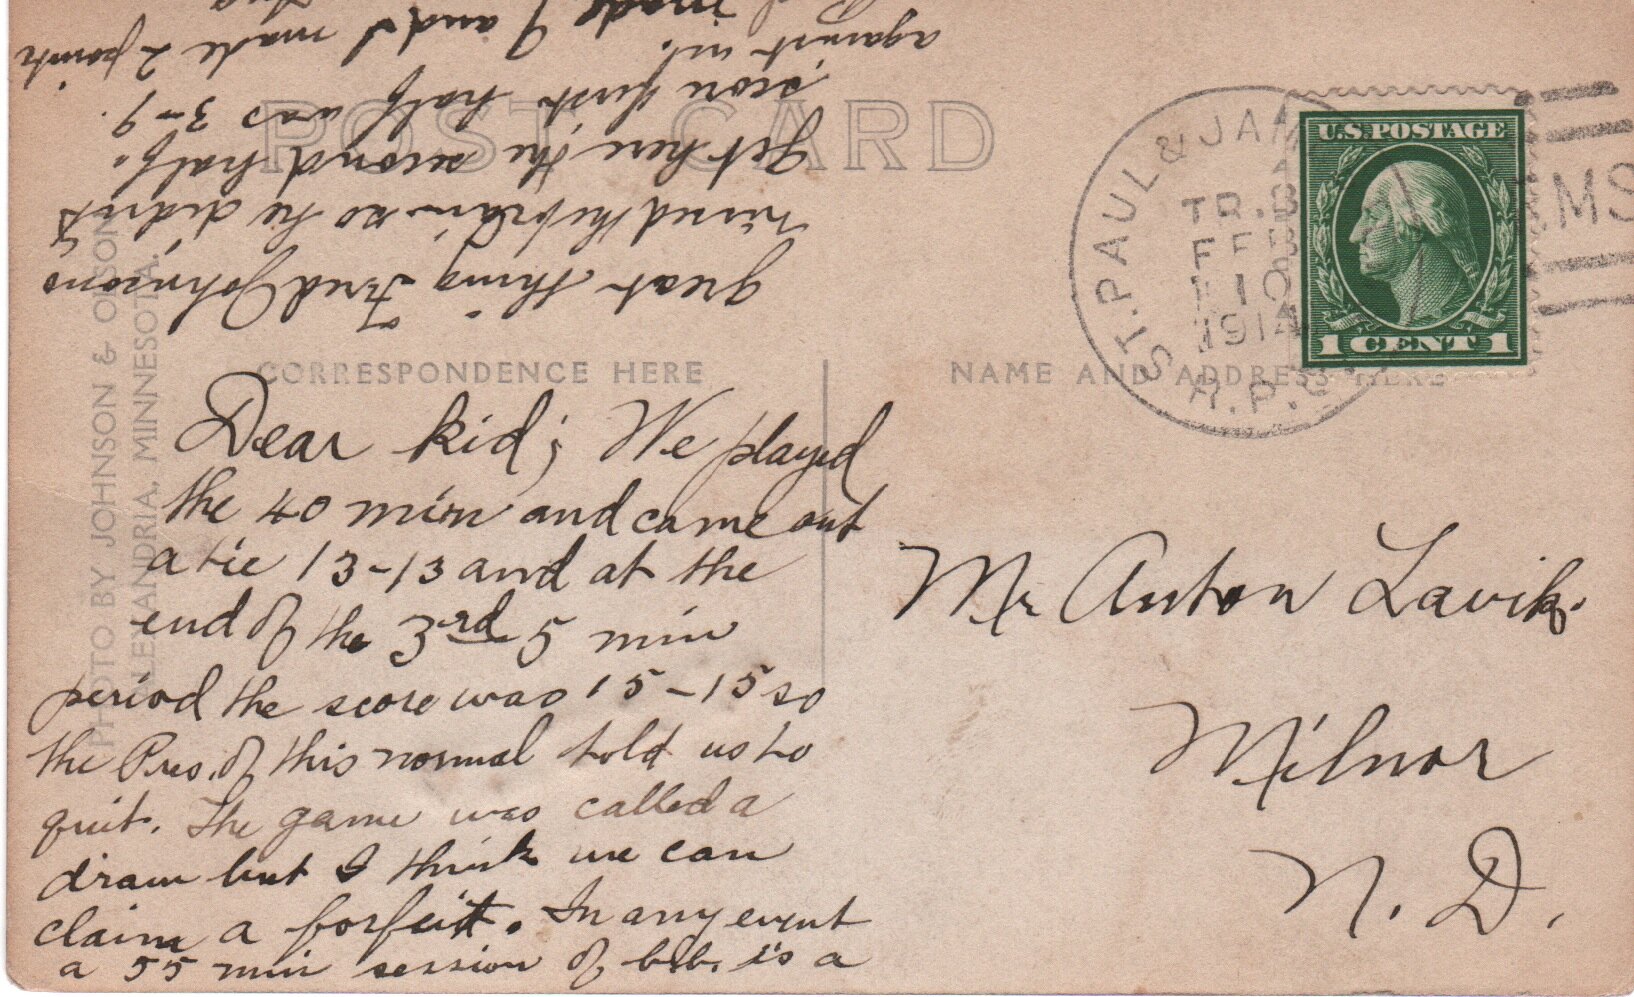 POST CARD
CORRESPONDENCE HERE
NAME AND ADDRESS HERE
PHOTO BY JOHNSON & OLSON
ALEXANDRIA, MINNESOTA.
Dear kid; We played
the 40 min and came out
a tie 13-13 and at the
end of the 3rd 5 min
period the score was 15-15 so
the Pres. of this normal told us to
quit. The game was called a
draw but I think we can
claim a forfeit. In any event
a 55 min session of b.b. is a
great thing Fred Johnsons
train so he didn't
get here the second half.
score first half was 3-9.
against us.
made 9 and I made 2 points
made
ST. PAUL & JAM
TR.
FEB
10
1914
R.P.O.
RMS
U.S. POSTAGE
1 CENT 1
Mr Anton Lavik.
Milnor
N. D.